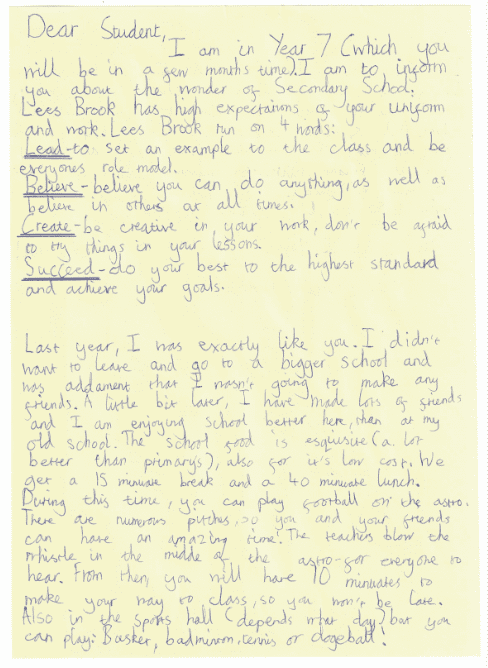 Dear Student,
I am in Year 7 (which you
will be in a few months time). I am to inform
you about the wonder of Secondary School.
Lees Brook has high expectations of your uniform
and work. Lees Brook run on 4 words:
Lead-to set an example to the class and be
everyones role model.
Believe-believe you can do anything, as well as
believe in others at all times.
Create-be creative in your work, don't be afraid
to try things in your lessons.
Succeed-do your best to the highest standard
and achieve your goals.
Last year, I was exactly like you. I didn't
want to leave and go to a bigger school and
was addament that I wasn't going to make any
friends. A little bit later, I have made lots of friends
and I am enjoying school better here, than at my
old school. The school food is esquisite (a lot
better than primary's), also for it's low cost. We
get a 15 minuate break and a 40 minuate lunch.
During this time, you can play football on the astro.
There are numerous pitches, so you and your friends
can have an amazing time. The teachers blow the
whistle in the middle of the astro-for everyone to
hear. From then, you will have 10 minuates to
make your way to class, so you won't be late.
Also in the sports hall (depends what day) but you
can play: Basket, badminton, tennis or dogeball!